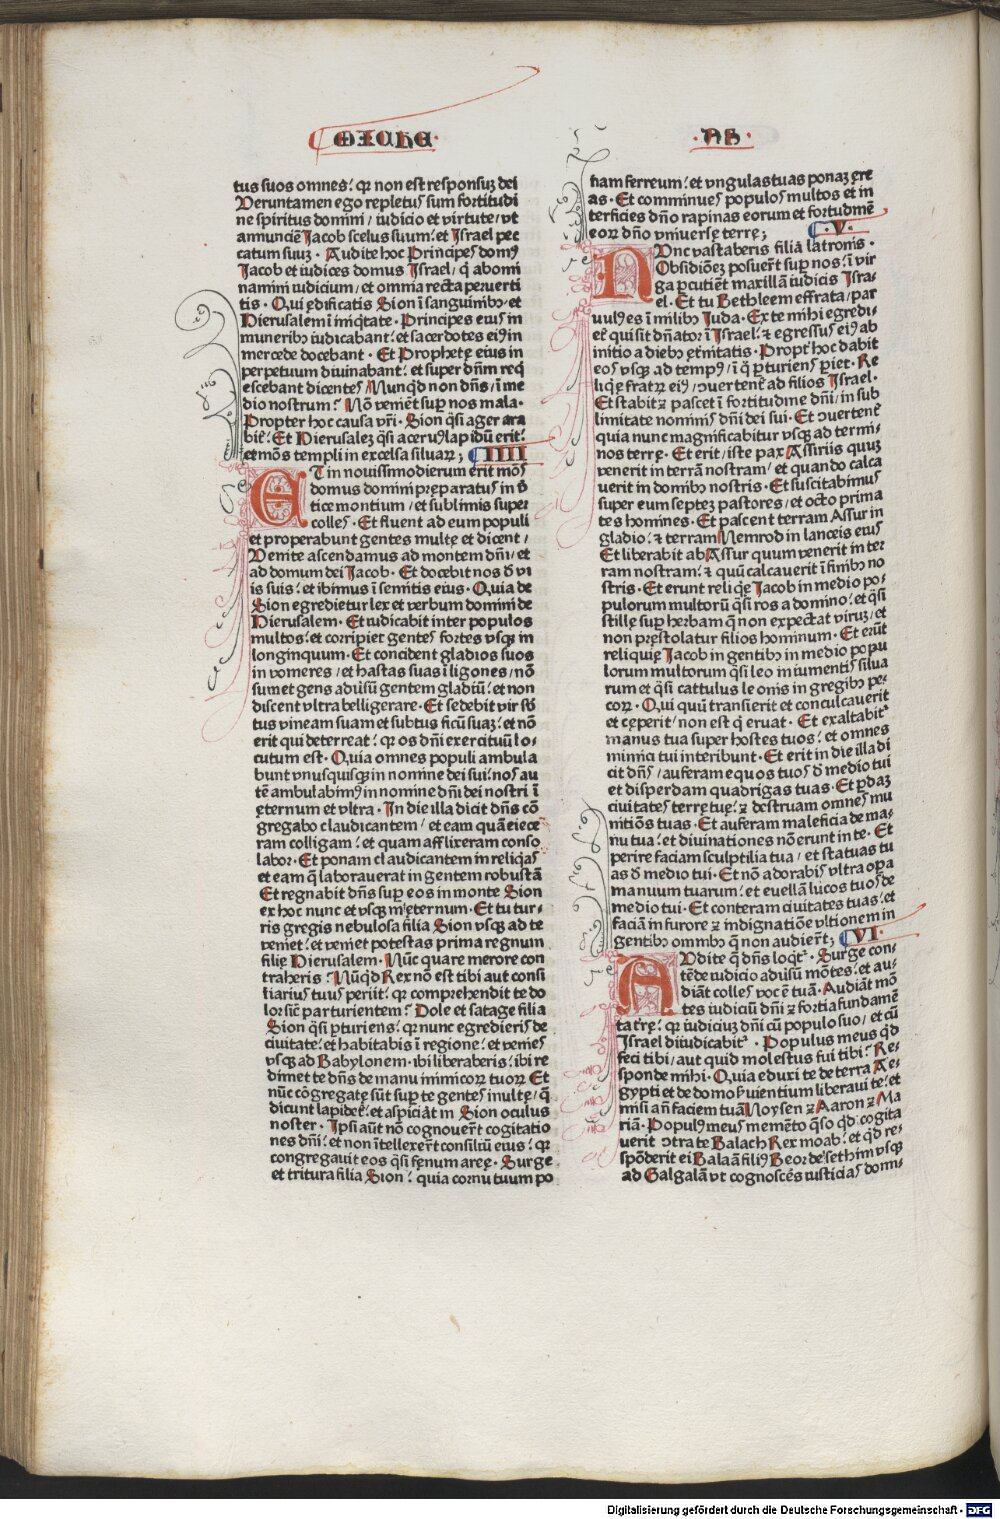 MICHE
AS
tus suos omnes: qr non est responsuz dei
Veruntamen ego repletus sum fortitudi
ne spiritus domini / iudicio et virtute / vt
annunciē Jacob scelus suum: et Israel pec
catum suuz . Audite hoc Principes domꝰ
Jacob et iudices domus Israel / q̄ abomi
namini iudicium / et omnia recta peruerti
tis . Qui ędificatis Sion ī sanguinibꝫ et
Hierusalem ī iniq̄tate . Principes eius in
muneribꝫ iudicabant: et sacerdotes eiꝰ in
mercede docebant . Et Prophetę eius in
perpetuum diuinabant: et super dn̄m req̄
escebant dicentes / Nunq̄d non dn̄s / ī me
dio nostrum? Nō veniēt sup̄ nos mala .
Propter hoc causa vr̄i . Sion q̄si ager ara
bit̄: Et Hierusalez q̄si aceruꝰ lapidū erit:
et mōs templi in excelsa siluaꝝ; IIII
ET in nouissimo dierum erit mōs
domus domini pręparatus in v̄
tice montium / et sublimis super
colles . Et fluent ad eum populi
et properabunt gentes multę et dicent /
Venite ascendamus ad montem dn̄i / et
ad domum dei Jacob . Et docebit nos d̄ vi
is suis: et ibimus ī semitis eius . Quia de
Sion egredietur lex et verbum domini de
Hierusalem . Et iudicabit inter populos
multos: et corripiet gentes fortes vsqꝫ in
longinquum . Et concident gladios suos
in vomeres / et hastas suas ī ligones / nō
sumet gens aduˢū gentem gladiū: et non
discent vltra belligerare . Et sedebit vir sb̄
tus vineam suam et subtus ficū suaz: et nō
erit qui deterreat: qr os dn̄i exercituū lo-
cutum est . Quia omnes populi ambula
bunt vnusquisqꝫ in nomine dei sui: nos au
tē ambulabimꝰ in nomine dn̄i dei nostri ī
ęternum et vltra . In die illa dicit dn̄s cō
gregabo claudicantem / et eam quā eiece
ram colligam: et quam afflixeram conso
labor . Et ponam claudicantem in reliq̄as
et eam q̄ laborauerat in gentem robustā
Et regnabit dn̄s sup̄ eos in monte Sion
ex hoc nunc et vsqꝫ in ęternum . Et tu tur-
ris gregis nebulosa filia Sion vsqꝫ ad te
veniet: et veniet potestas prima regnum
filię Hierusalem . Nūc quare merore con
traheris? Nūq̄d Rex nō est tibi aut consi
liarius tuus periit: qr comprehendit te do
lor sic̄ parturientem? Dole et satage filia
Sion q̄si p̄turiens: qr nunc egredieris de
ciuitate: et habitabis ī regione: et venies
vsqꝫ ad Babylonem . ibi liberaberis: ibi re
dimet te dn̄s de manu inimicoꝝ tuoꝝ Et
nūc cōgregatę sūt sup̄ te gentes multę / q̄
dicunt lapidet̄: et aspiciāt in Sion oculus
noster . Ipsi aūt nō cognouer̄t cogitatio
nes dn̄i: et non ītellexer̄t consiliū eius: qr
congregauit eos q̄si fęnum areę . Surge
et tritura filia Sion: quia cornu tuum po
nam ferreum: et vngulas tuas ponaz ęre
as . Et comminues populos multos et in
terficies dn̄o rapinas eorum et fortudinē
eoꝝ dn̄o vniuersę terrę; V.
NVnc vastaberis filia latronis .
Obsidiōez posuer̄t sup̄ nos: ī vir
ga p̄cutiēt maxillā iudicis Isra-
el . Et tu Bethleem effrata / par
uulꝰ es ī milibꝫ Juda . Ex te mihi egredi-
et̄ qui sit dn̄ator ī Israel: ꝛ egressus eiꝰ ab
initio a diebꝫ ęt̄nitatis . Propt̄ hoc dabit
eos vsqꝫ ad tempꝰ / ī q̄ p̄turiens p̄iet . Re
liq̄ę fratꝝ eiꝰ / ꝯuertent̄ ad filios Israel .
Et stabit ꝛ pascet ī fortitudine dn̄i / in sub
limitate nominis dn̄i dei sui . Et ꝯuertent̄
quia nunc magnificabitur vsqꝫ ad termi-
nos terrę . Et erit / iste pax / Assiriis quuz
venerit in terrā nostram / et quando calca
uerit in domibꝫ nostris . Et suscitabimus
super eum septez pastores / et octo prima
tes homines . Et pascent terram Assur in
gladio: ꝛ terram Nemrod in lanceis eius
Et liberabit ab Assur quum venerit in ter
ram nostram: ꝛ quū calcauerit ī finibꝫ no
stris . Et erunt reliq̄ę Jacob in medio po-
pulorum multorū q̄si ros a domino: et q̄si
stillę sup̄ herbam q̄ non expectat viruz / et
non pręstolatur filios hominum . Et erūt
reliquię Jacob in gentibꝫ in medio popu
lorum multorum q̄si leo in iumentis silua
rum et q̄si cattulus leonis in gregibꝫ pe-
coꝝ . Qui quū transierit et conculcauerit
et cęperit / non est q̄ eruat . Et exaltabit̄
manus tua super hostes tuos: et omnes
inimici tui interibunt . Et erit in die illa di
cit dn̄s / auferam equos tuos d̄ medio tui
et disperdam quadrigas tuas . Et p̄daz
ciuitates terrę tuę: ꝛ destruam omnes mu
nitiōs tuas . Et auferam maleficia de ma-
nu tua: et diuinationes nō erunt in te . Et
perire faciam sculptilia tua / et statuas tu
as d̄ medio tui . Et nō adorabis vltra op̄a
manuum tuarum: et euellā lucos tuos de
medio tui . Et conteram ciuitates tuas: et
faciā in furore ꝛ indignatiōe vltionem in
gentibꝫ omnibꝫ q̄ non audier̄t; VI.
AVdite q̄ dn̄s loqt̄ . Surge con-
tēde iudicio aduˢū mōtes: et au-
diāt colles vocē tuā . Audiāt mō
tes iudiciū dn̄i ꝛ fortia fundamē
ta tr̄ę: qr iudiciuz dn̄i cū populo suo / et cū
Israel diiudicabit̄ . Populus meus q̄d
feci tibi / aut quid molestus fui tibi? Re-
sponde mihi . Quia eduxi te de terra Ae-
gypti et de domo s̄uientium liberaui te: et
misi an̄ faciem tuā Moysen ꝛ Aaron ꝛ Ma
riā . Populꝰ meus memēto q̄so q̄d cogita
uerit ꝯtra te Balach Rex moab: et q̄d re-
spōderit ei Balaā filiꝰ Beor de sethim vsqꝫ
ad Galgalā vt cognoscēs iusticias domi-
Digitalisierung gefördert durch die Deutsche Forschungsgemeinschaft - DFG